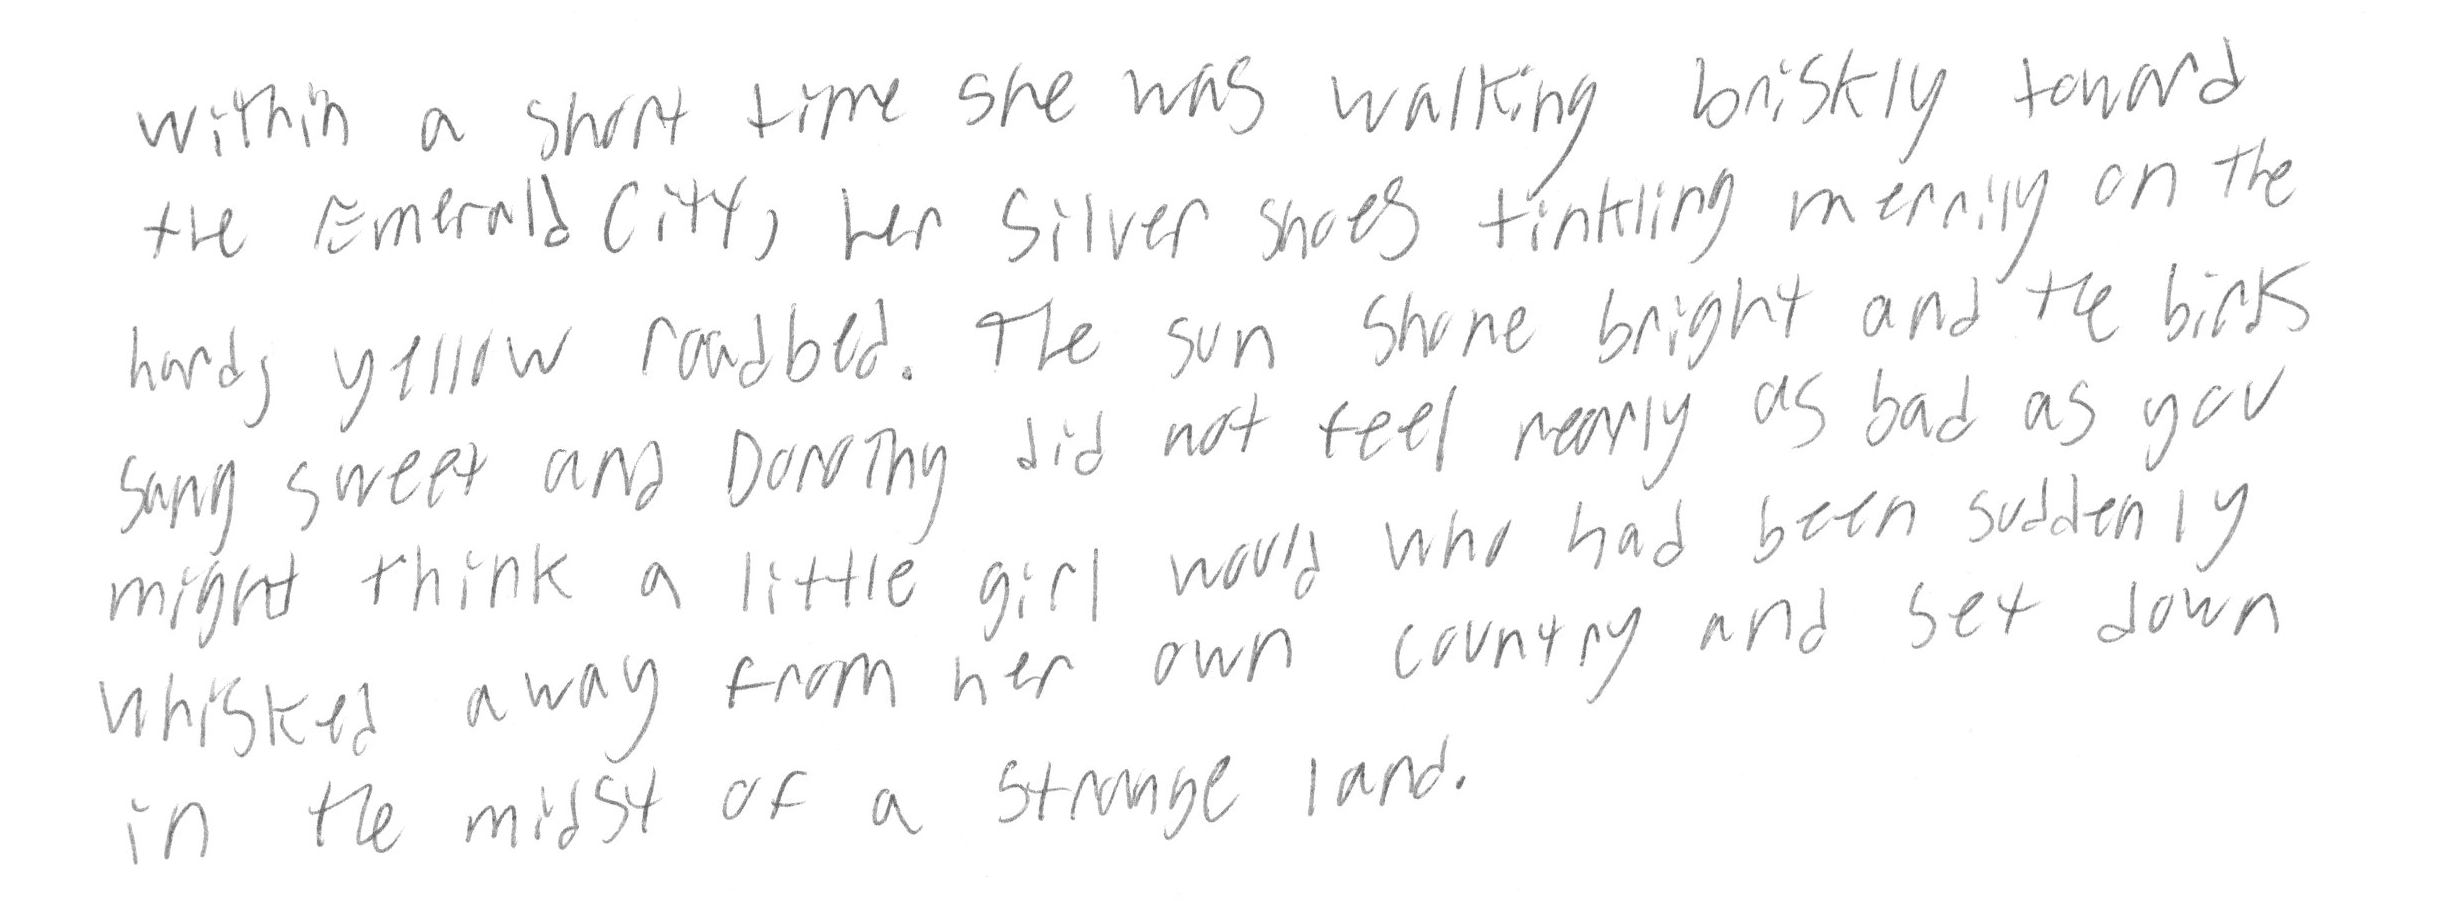 within a short time she was walking briskly toward
the Emerald City, her silver shoes tinkling merrily on the
hard, yellow roadbed. The sun shone bright and the birds
sang sweet and Dorothy did not feel nearly as bad as you
might think a little girl would who had been suddenly
whisked away from her own country and set down
in the midst of a strange land.